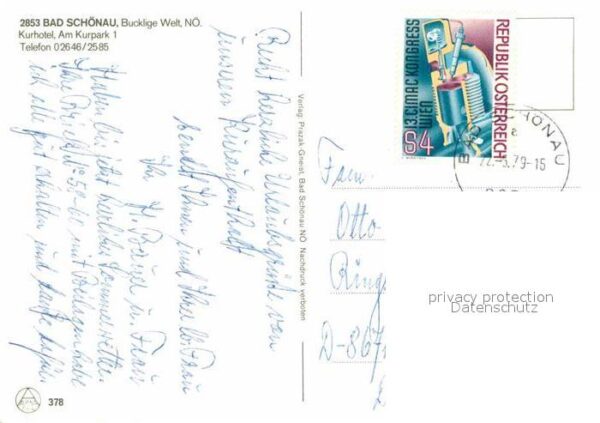 2853 BAD SCHÖNAU, Bucklige Welt, NÖ.
Kurhotel, Am Kurpark 1
Telefon 02646/2585
Recht herzliche Urlaubsgrüße von
unserem Kuraufenthalt
sendet Ihnen und Ihrer lb. Frau
Ihr H. u. Frau
Haben hier jetzt herrliches Sommerwetter.
Ihre mit Beilagen habe
ich alle gut erhalten und danke dafür.
Verlag: Prazak-Gneist, Bad Schönau NÖ. Nachdruck verboten
378
13. CIMAC KONGRESS
WIEN
S4
REPUBLIK ÖSTERREICH
BAD SCHÖNAU
22.-5.79-15
Fam.
Otto
Ring
D-867
privacy protection
Datenschutz